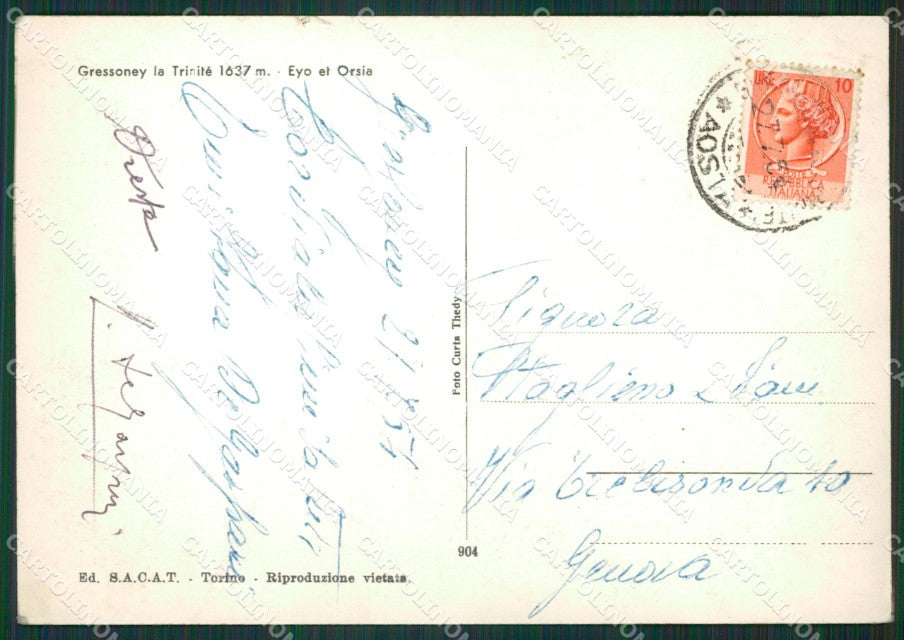 Gressoney la Trinité 1637 m. - Eyo et Orsia
LIRE 10
REPUBBLICA
ITALIANA
AOSTA
Gressoney 27.7.57
Cordiali saluti
Oreste
Signora
Staglieno
Via Trebisonda 10
Genova
Foto Curta Thedy
904
Ed. S.A.C.A.T. - Torino - Riproduzione vietata.
CARTOLINOMANIA